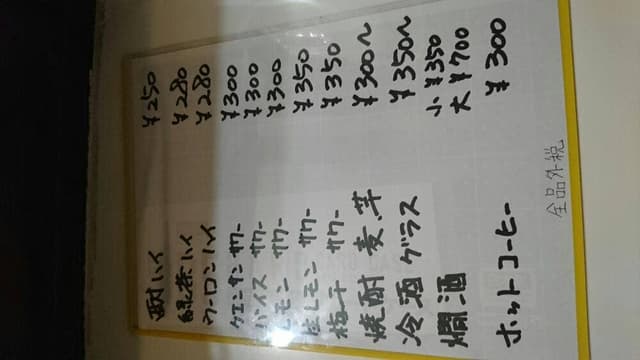 酎ハイ ¥250
緑茶ハイ ¥280
ウーロンハイ ¥280
クエンサン サワー ¥300
バイス サワー ¥300
レモン サワー ¥300
生レモン サワー ¥350
梅干 サワー ¥350
焼酎 麦、芋 ¥300〜
冷酒 グラス ¥350〜
燗酒 小 ¥350
大 ¥700
ホットコーヒー ¥300
全品外税